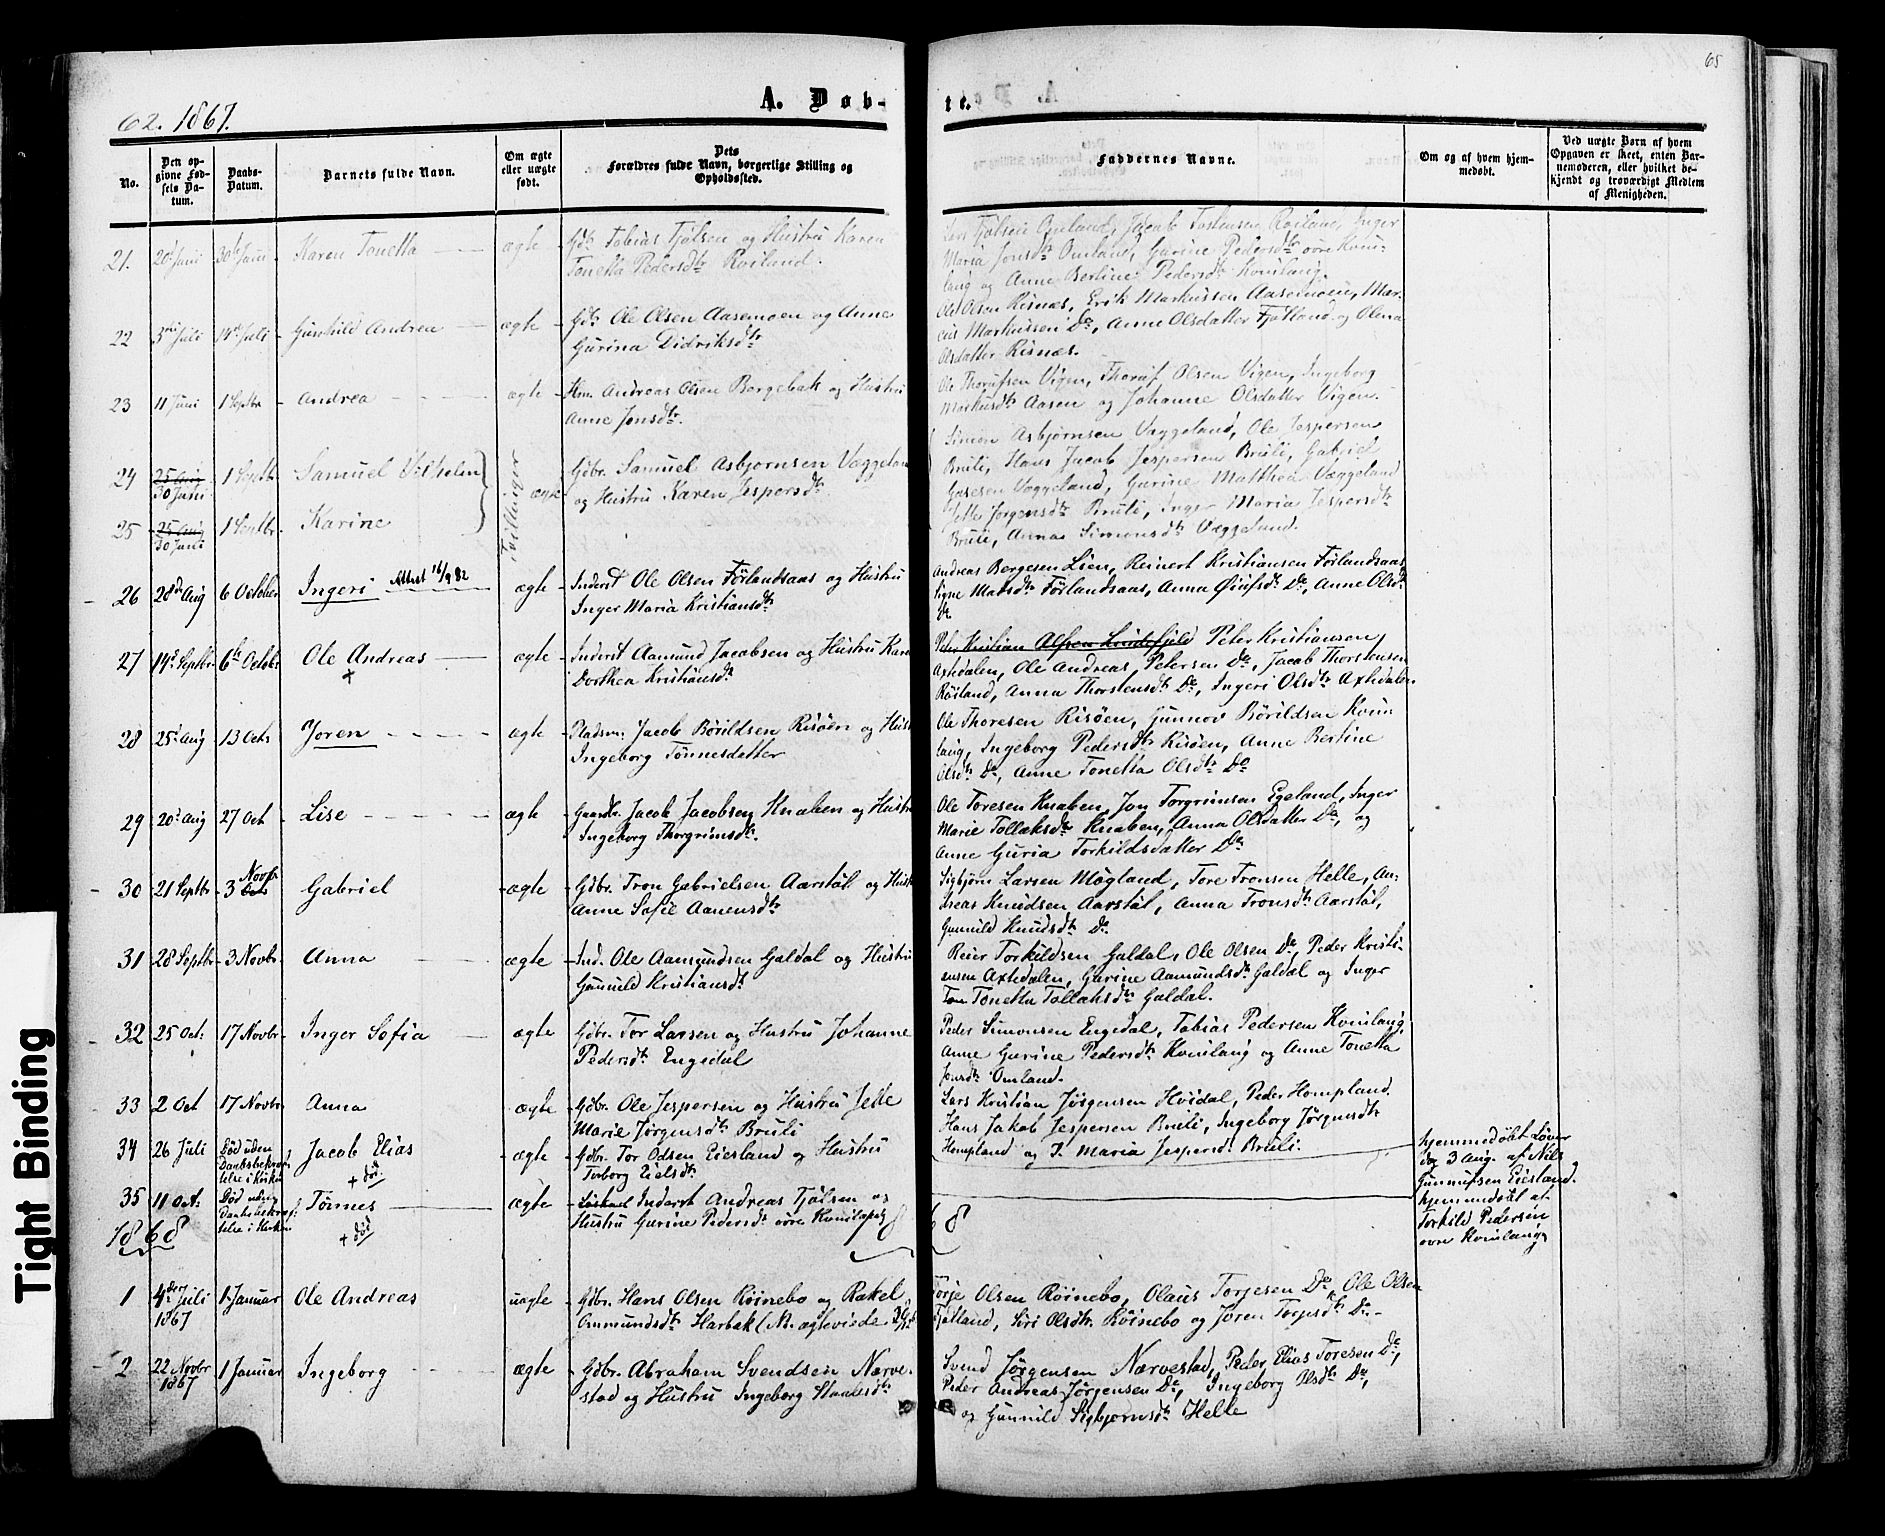 65
62. 1867.
A. Døb-
te.
No.
Den opgivne Fødsels Datum.
Daabs-Datum.
Barnets fulde Navn.
Om ægte eller uægte født.
Dets Forældres fulde Navn, borgerlige Stilling og Opholdssted.
Faddernes Navne.
Om og af hvem hjemmedøbt.
Ved uægte Børn af hvem Opgaven er skeet, enten Barnemoderen, eller hvilket bekjendt og troværdigt Medlem af Menigheden.
21. 20 Juni 30 Juni Karen Tonetta ægte Gdbr. Tobias Tjølsen og Hustru Karen
Tonetta Pedersdtr Røiland.
Lars Tjølsen Omland, Jacob Tostensen Røiland, Inger
Maria Jonsdtr Omland, Gurine Pedersdtr øvre Kvin-
laug og Anne Bertine Pedersdtr Kvinlaug.
22 3die Juli 14de Juli Gunhild Andrea ægte Gdbr. Ole Olsen Aasemoen og Anne
Gurina Didriksdtr
Ole Olsen Risnæs, Erik Markussen Aasemoen, Mar-
cus Markussen Do, Anne Olsdatter Fjotland og Olena
Olsdatter Risnæs.
23 11 Juni 1 Septbr Andrea ægte Hm. Andreas Olsen Bergebak og Hustru
Anne Jonsdtr.
Ole Thorufsen Vigen, Thoruf Olsen Vigen, Ingeborg
Markusdtr Aasen og Johanne Olsdatter Vigen.
24 25 Aug 30 Juni 1 Septbr Samuel Vilhelm Tvillinger ægte Gdbr. Samuel Asbjørnsen Væggeland
og Hustru Karen Jespersdtr
25 25 Aug 30 Juni 1 Septbr. Karine
Simon Asbjørnsen Væggeland, Ole Jespersen
Bruli, Hans Jacob Jespersen Bruli, Gabriel
Gusesen Væggeland, Gurine Matthea Væggeland
Jette Jørgensdtr Bruli, Inger Maria Jespersdtr
Bruli, Annas Simonsdtr Væggeland.
26 28de Aug 6 October Ingeri Attest 16/9 82 ægte Inderst Ole Olsen Førlandsaas og Hustru
Inger Maria Kristiansdtr
Andreas Bergesen Lien, Reinert Kristiansen Førlandsaas,
Signe Madsdtr Førlandsaas, Anna Øiufsdtr Do, Anne Olsdtr
Do
27 14de Septbr 6te Octbr Ole Andreas + ægte Inderst Aamund Jacobsen og Hustru Karen
Dorthea Kristiansdtr
Peter Kristian Alfsen Lindefjeld Peter Kristiansen,
Axhdalen, Ole Andreas, Petersen Do, Jacob Thorstensen
Røiland, Anna Thorstensdtr Do, Ingeri Olsdtr Axhdalen.
28 25d Aug 13 Octr Joren ægte Pladsm. Jacob Børildsen Risøen og Hust
Ingeborg Tønnesdatter
Ole Thoresen Risøen, Gunnov Børildsen Kvin
laug, Ingeborg Pedersdtr Risøen, Anne Bertine
Olsdtr Do, Anne Tonetta Olsdtr Do
29 20d Aug 27 Oct Lise ægte Gaardbr. Jacob Jacobsen Knaben og Hustru
Ingeborg Thorgrimsdtr.
Ole Toresen Knaben, Jon Torgrimsen Egeland, Inger
Marie Tollaksdtr Knaben, Anna Olsdatter Do, og
Anne Guria Torkildsdatter Do
30 21 Septbr 3 Octr Novbr Gabriel ægte Gdbr. Tron Gabrielsen Aarstøl og Hust
Anne Sofie Aanensdtr
Sigbjørn Larsen Møgland, Tore Tronsen Helle, An-
dreas Knudsen Aarstøl, Anna Tronsdtr Aarstøl,
Gunnild Knudsdtr Do.
31 28 Septbr 3 Novbr. Anna ægte Ind. Ole Aamundsen Galdal og Hustru
Gunnild Kristiansdtr
Reier Torkildsen Galdal, Ole Olsen Do, Peder Kristi-
ensen Axhdalen, Gurine Aamundsdtr Galdal og Inger
Ton Tonetta Tollaksdtr Galdal.
32 25 Oct: 17 Novbr Inger Sofia ægte Gdbr. Tor Larsen og Hustru Johanne
Pedersdtr Engedal
Peder Simonsen Engedal, Tobias Pedersen Kvinlaug,
Anne Gurine Pedersdtr Kvinlaug og Anne Tonetta
Jonsdtr Omland.
33 2 Oct 17 Novbr. Anna ægte Gdbr. Ole Jespersen og Hustru Jette
Marie Jørgensdtr Bruli
Lars Kristian Jørgensen Hvidal, Peder Hompland.
Hans Jakob Jespersen Bruli, Ingeborg Jørgensdtr
Hompland og I. Maria Jespersdtr Bruli.
34 26 Juli Død uden Daabsbekræftelse i Kirken Jacob Elias + død ægte Gdbr. Tor Odsen Eiesland og Hustru
Torborg Eielsdtr
hjemmedøbt Løver
dag 3 Aug. af Nils
Gunnufsen Eiesland.
35 11 Oct: Død uden Daabsbekræftelse i Kirken Tønnes + død ægte Inderst Andreas Tjølsen og
Hustru Gurine Pedersdtr øvre Kvinlaug
hjemmedøbt af
Torkild Pedersen
øvre Kvinlaug
1868 68
1 4de Juli 1867 1 Januar Ole Andreas uægte Gdbr. Hans Olsen Røinebo og Rakel
Ommundsdtr Harbak (Nb. ægteviede
Torje Olsen Røinebo, Olaus Torjesen Do, Ole Olsen
Fjotland, Siri Olsdtr. Røinebo og Joren Torjesdtr Do.
2 22 Novbr 1867 1 Januar Ingeborg ægte Gdbr. Abraham Svendsen Nærve-
stad og Hustru Ingeborg
Svend Jørgensen Nærvestad, Peder Elias Toresen Do,
Peder Andreas Jørgensen Do, Ingeborg Olsdtr Do,
og Gunnild Sigbjørnsdtr Helle
Tight Binding